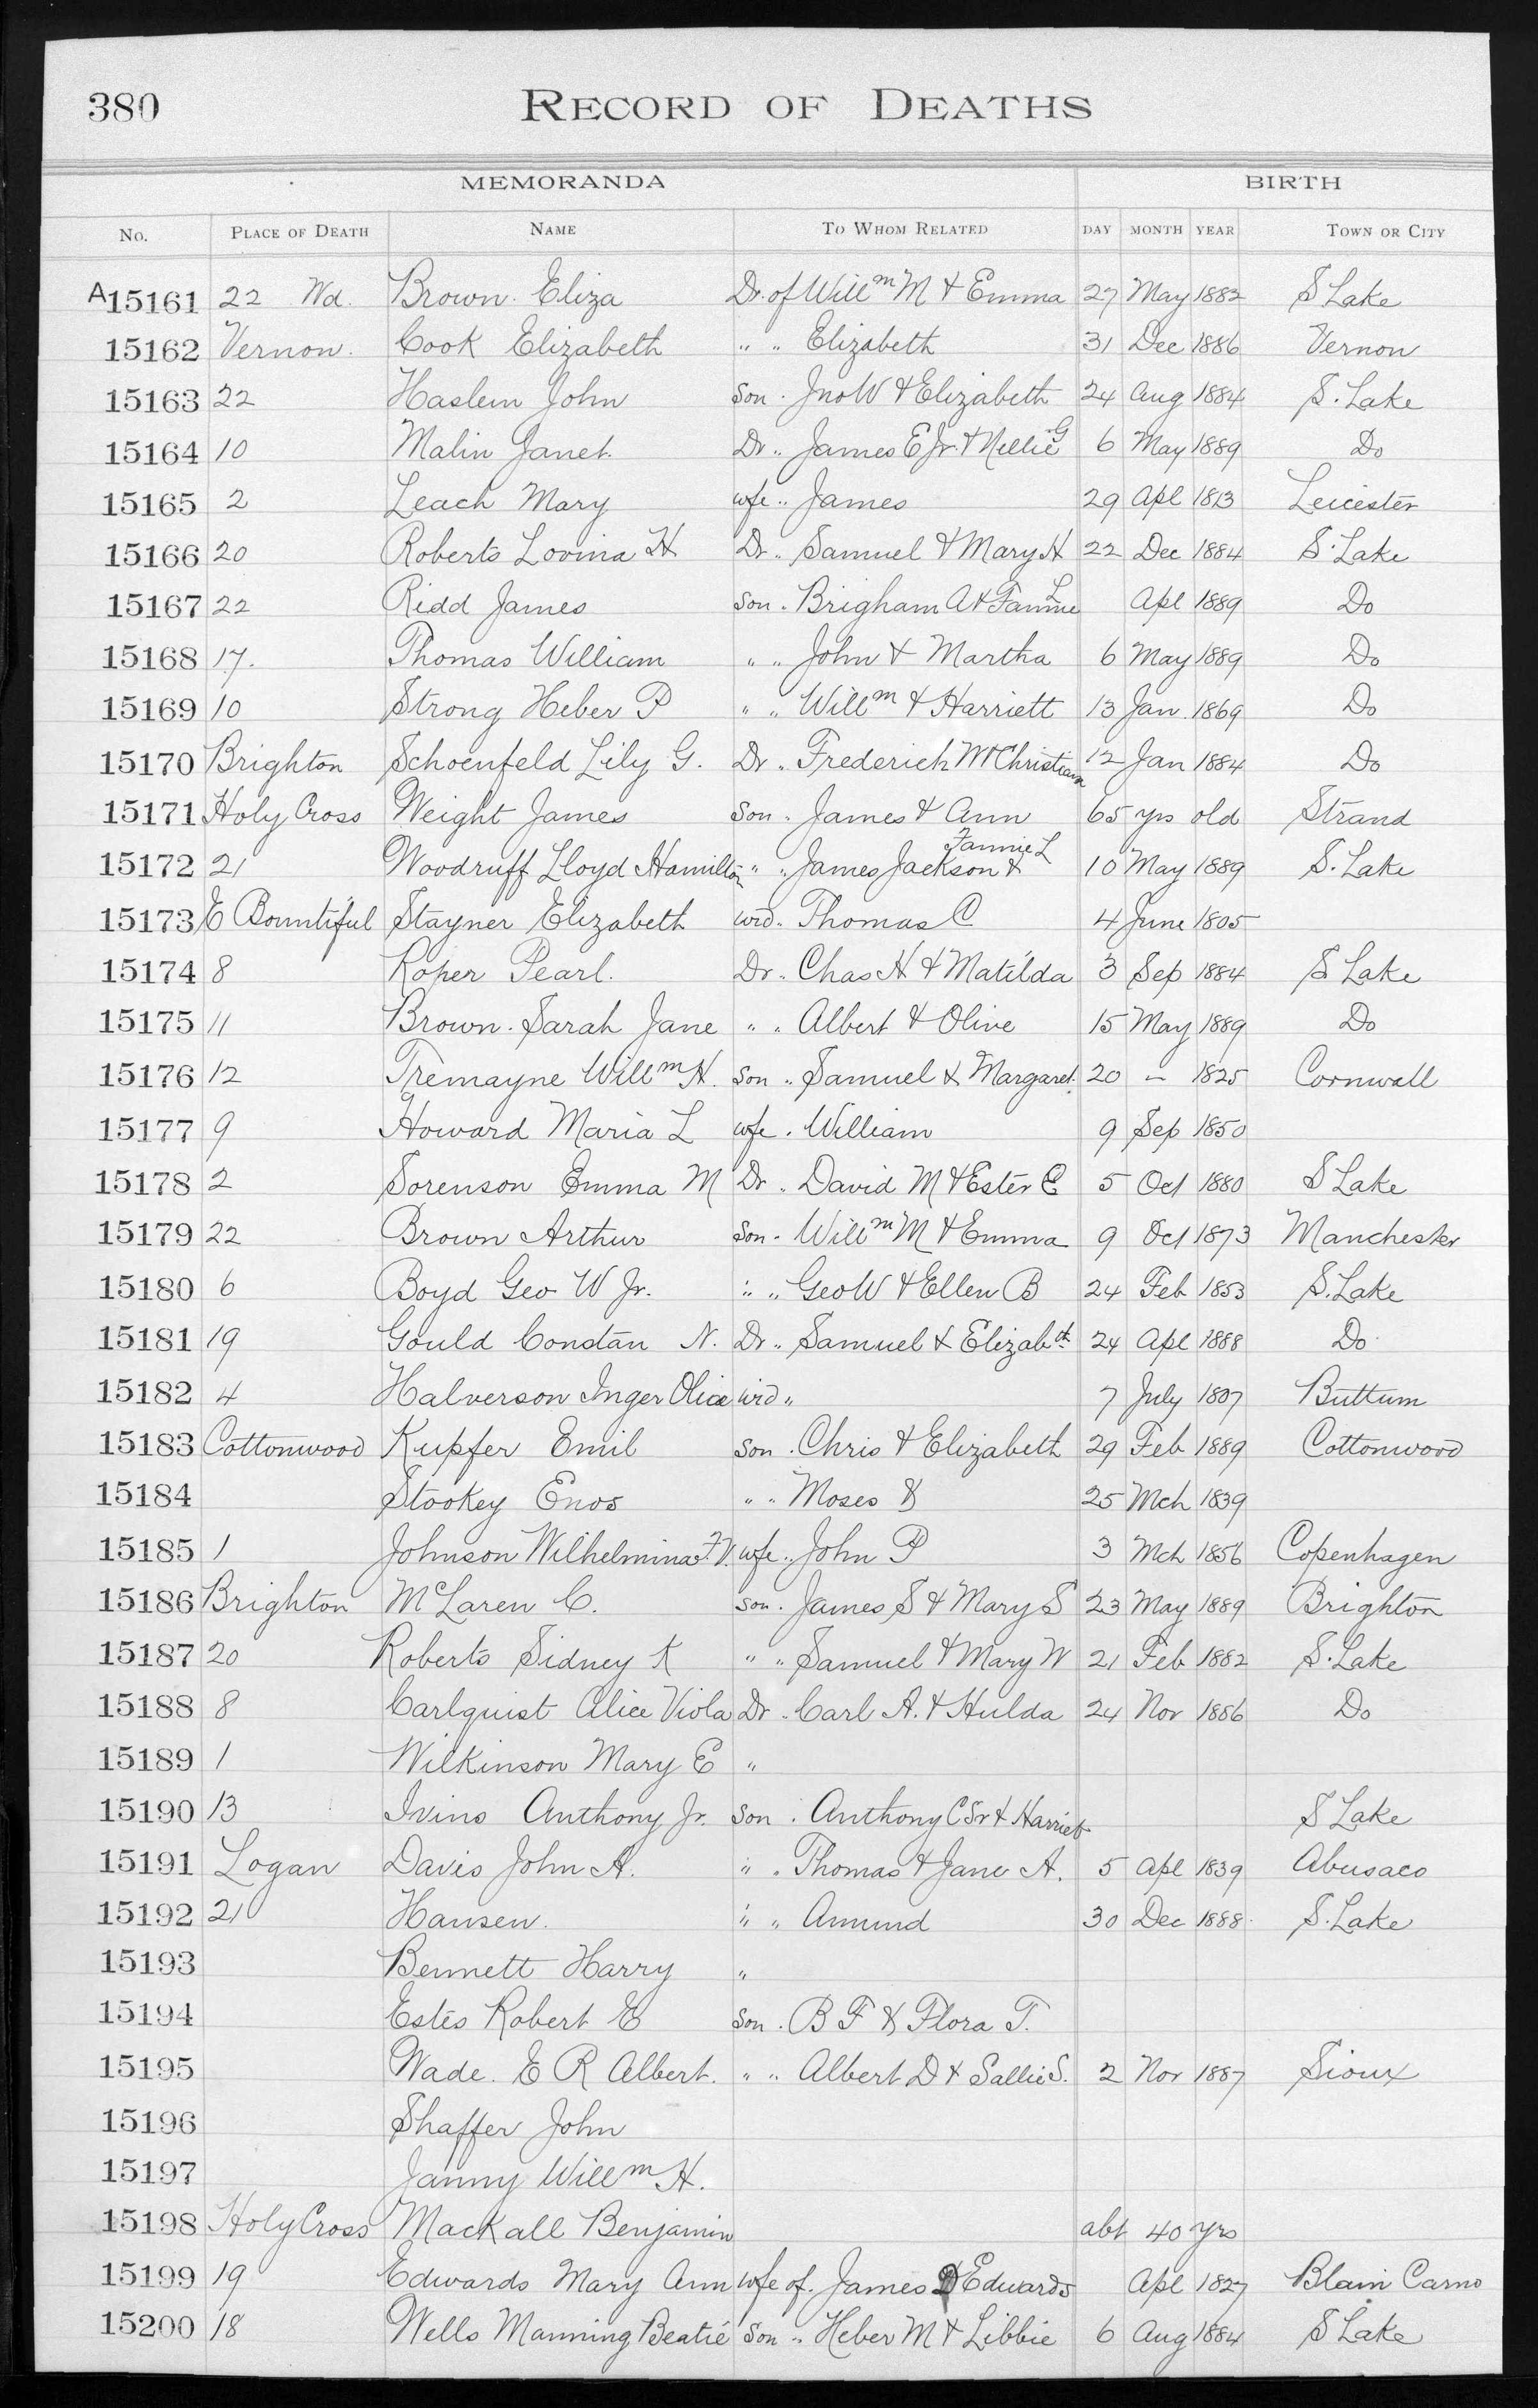 380 RECORD OF DEATHS
MEMORANDA BIRTH
No. PLACE OF DEATH NAME TO WHOM RELATED DAY MONTH YEAR TOWN OR CITY
A15161 22 Wd. Brown. Eliza Dr. of Will^m M & Emma 27 May 1882 S Lake
15162 Vernon. Cook Elizabeth " " Elizabeth 31 Dec 1886 Vernon
15163 22 Haslem John Son. Jno W & Elizabeth 24 Aug 1884 S. Lake
15164 10 Malin Janet. Dr. " James E Jr. & Nellie G 6 May 1889 Do
15165 2 Leach Mary wfe " James 29 Apl 1813 Leicester
15166 20 Roberts Lovina H Dr. " Samuel & Mary H 22 Dec 1884 S. Lake
15167 22 Ridd James Son. Brigham A & Fannie L Apl 1889 Do
15168 17. Thomas William " " John & Martha 6 May 1889 Do
15169 10 Strong Heber P " " Will^m & Harriett 13 Jan. 1869 Do
15170 Brighton Schoenfeld Lily G. Dr. " Frederich W Christian 12 Jan 1884 Do
15171 Holy Cross Weight James Son. James & Ann 65 yrs old Strand
15172 21 Woodruff Lloyd Hamilton " " James Jackson & Fannie L 10 May 1889 S. Lake
15173 E Bountiful Stayner Elizabeth wid. " Thomas C 4 June 1805
15174 8 Roper Pearl. Dr. " Chas H & Matilda 3 Sep 1884 S Lake
15175 11 Brown. Sarah Jane " " Albert & Olive 15 May 1889 Do
15176 12 Tremayne Will^m H. Son " Samuel & Margaret. 20 – 1825 Cornwall
15177 9 Howard Maria L wfe. William 9 Sep 1850
15178 2 Sorenson Emma M Dr. " David M & Ester E 5 Oct 1880 S Lake
15179 22 Brown Arthur Son. Will^m M & Emma 9 Oct 1873 Manchester
15180 6 Boyd Geo W Jr. " " Geo W & Ellen B 24 Feb 1853 S. Lake
15181 19 Gould Constan N. Dr. " Samuel & Elizab^th 24 Apl 1888 Do
15182 4 Halverson Inger Wid " 7 July 1807 Buttum
15183 Cottonwood Kupfer Emil Son. Chris & Elizabeth 29 Feb 1889 Cottonwood
15184 Stookey Enos " " Moses & 25 Mch 1839
15185 1 Johnson Wilhelmina F. V. wfe " John P 3 Mch 1856 Copenhagen
15186 Brighton McLaren C. Son. James S & Mary S 23 May 1889 Brighton
15187 20 Roberts Sidney K " " Samuel & Mary W 21 Feb 1882 S. Lake
15188 8 Carlquist Alice Viola Dr. " Carl A. & Hulda 24 Nov 1886 Do
15189 1 Wilkinson Mary E "
15190 13 Ivins Anthony Jr. Son. Anthony C Sr & Harriet S Lake
15191 Logan Davis John A. " " Thomas & Jane A. 5 Apl 1839 Abusaco
15192 21 Hansen. " " Amund 30 Dec 1888. S. Lake
15193 Bennett Harry "
15194 Estes Robert E Son. B F & Flora T.
15195 Wade. E R Albert. " " Albert D & Sallie S. 2 Nov 1887 Sioux
15196 Shaffer John
15197 Janny Will^m H.
15198 Holy Cross Mackall Benjamin abt 40 yrs
15199 19 Edwards Mary Ann wfe of. James Edwards Apl 1827 Blain Carno
15200 18 Wells Manning Beatie Son " Heber M & Libbie 6 Aug 1884 S Lake